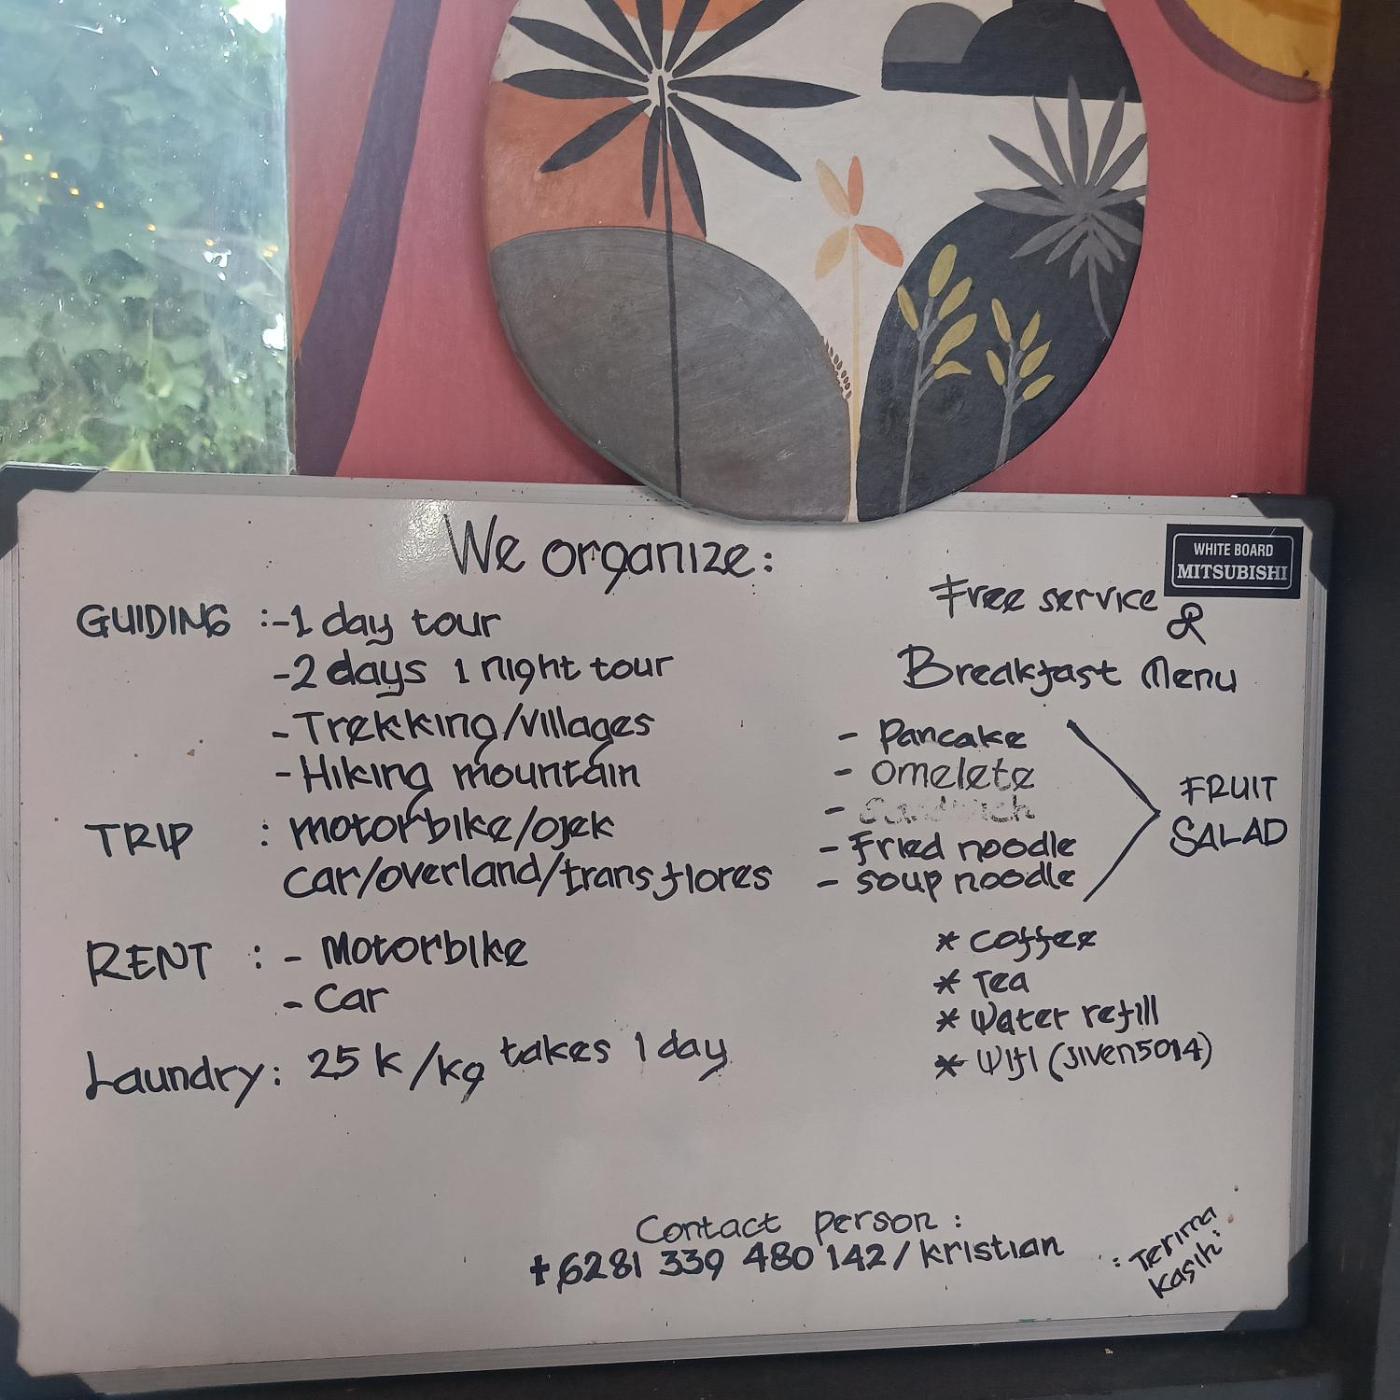 We organize:
GUIDING :-1 day tour
-2 days 1 night tour
-Trekking/villages
-Hiking mountain
TRIP : motorbike/ojek
car/overland/trans flores
RENT : - Motorbike
- Car
Laundry: 25 k /kg takes 1 day
WHITE BOARD
MITSUBISHI
Free service
&
Breakfast Menu
- Pancake
- Omelete
- Sandwich
- Fried noodle
- soup noodle
FRUIT
SALAD
* Coffee
* Tea
* Water refill
* Wifi (Jiven5014)
Contact person :
+6281 339 480 142/ kristian
: Terima
Kasih :